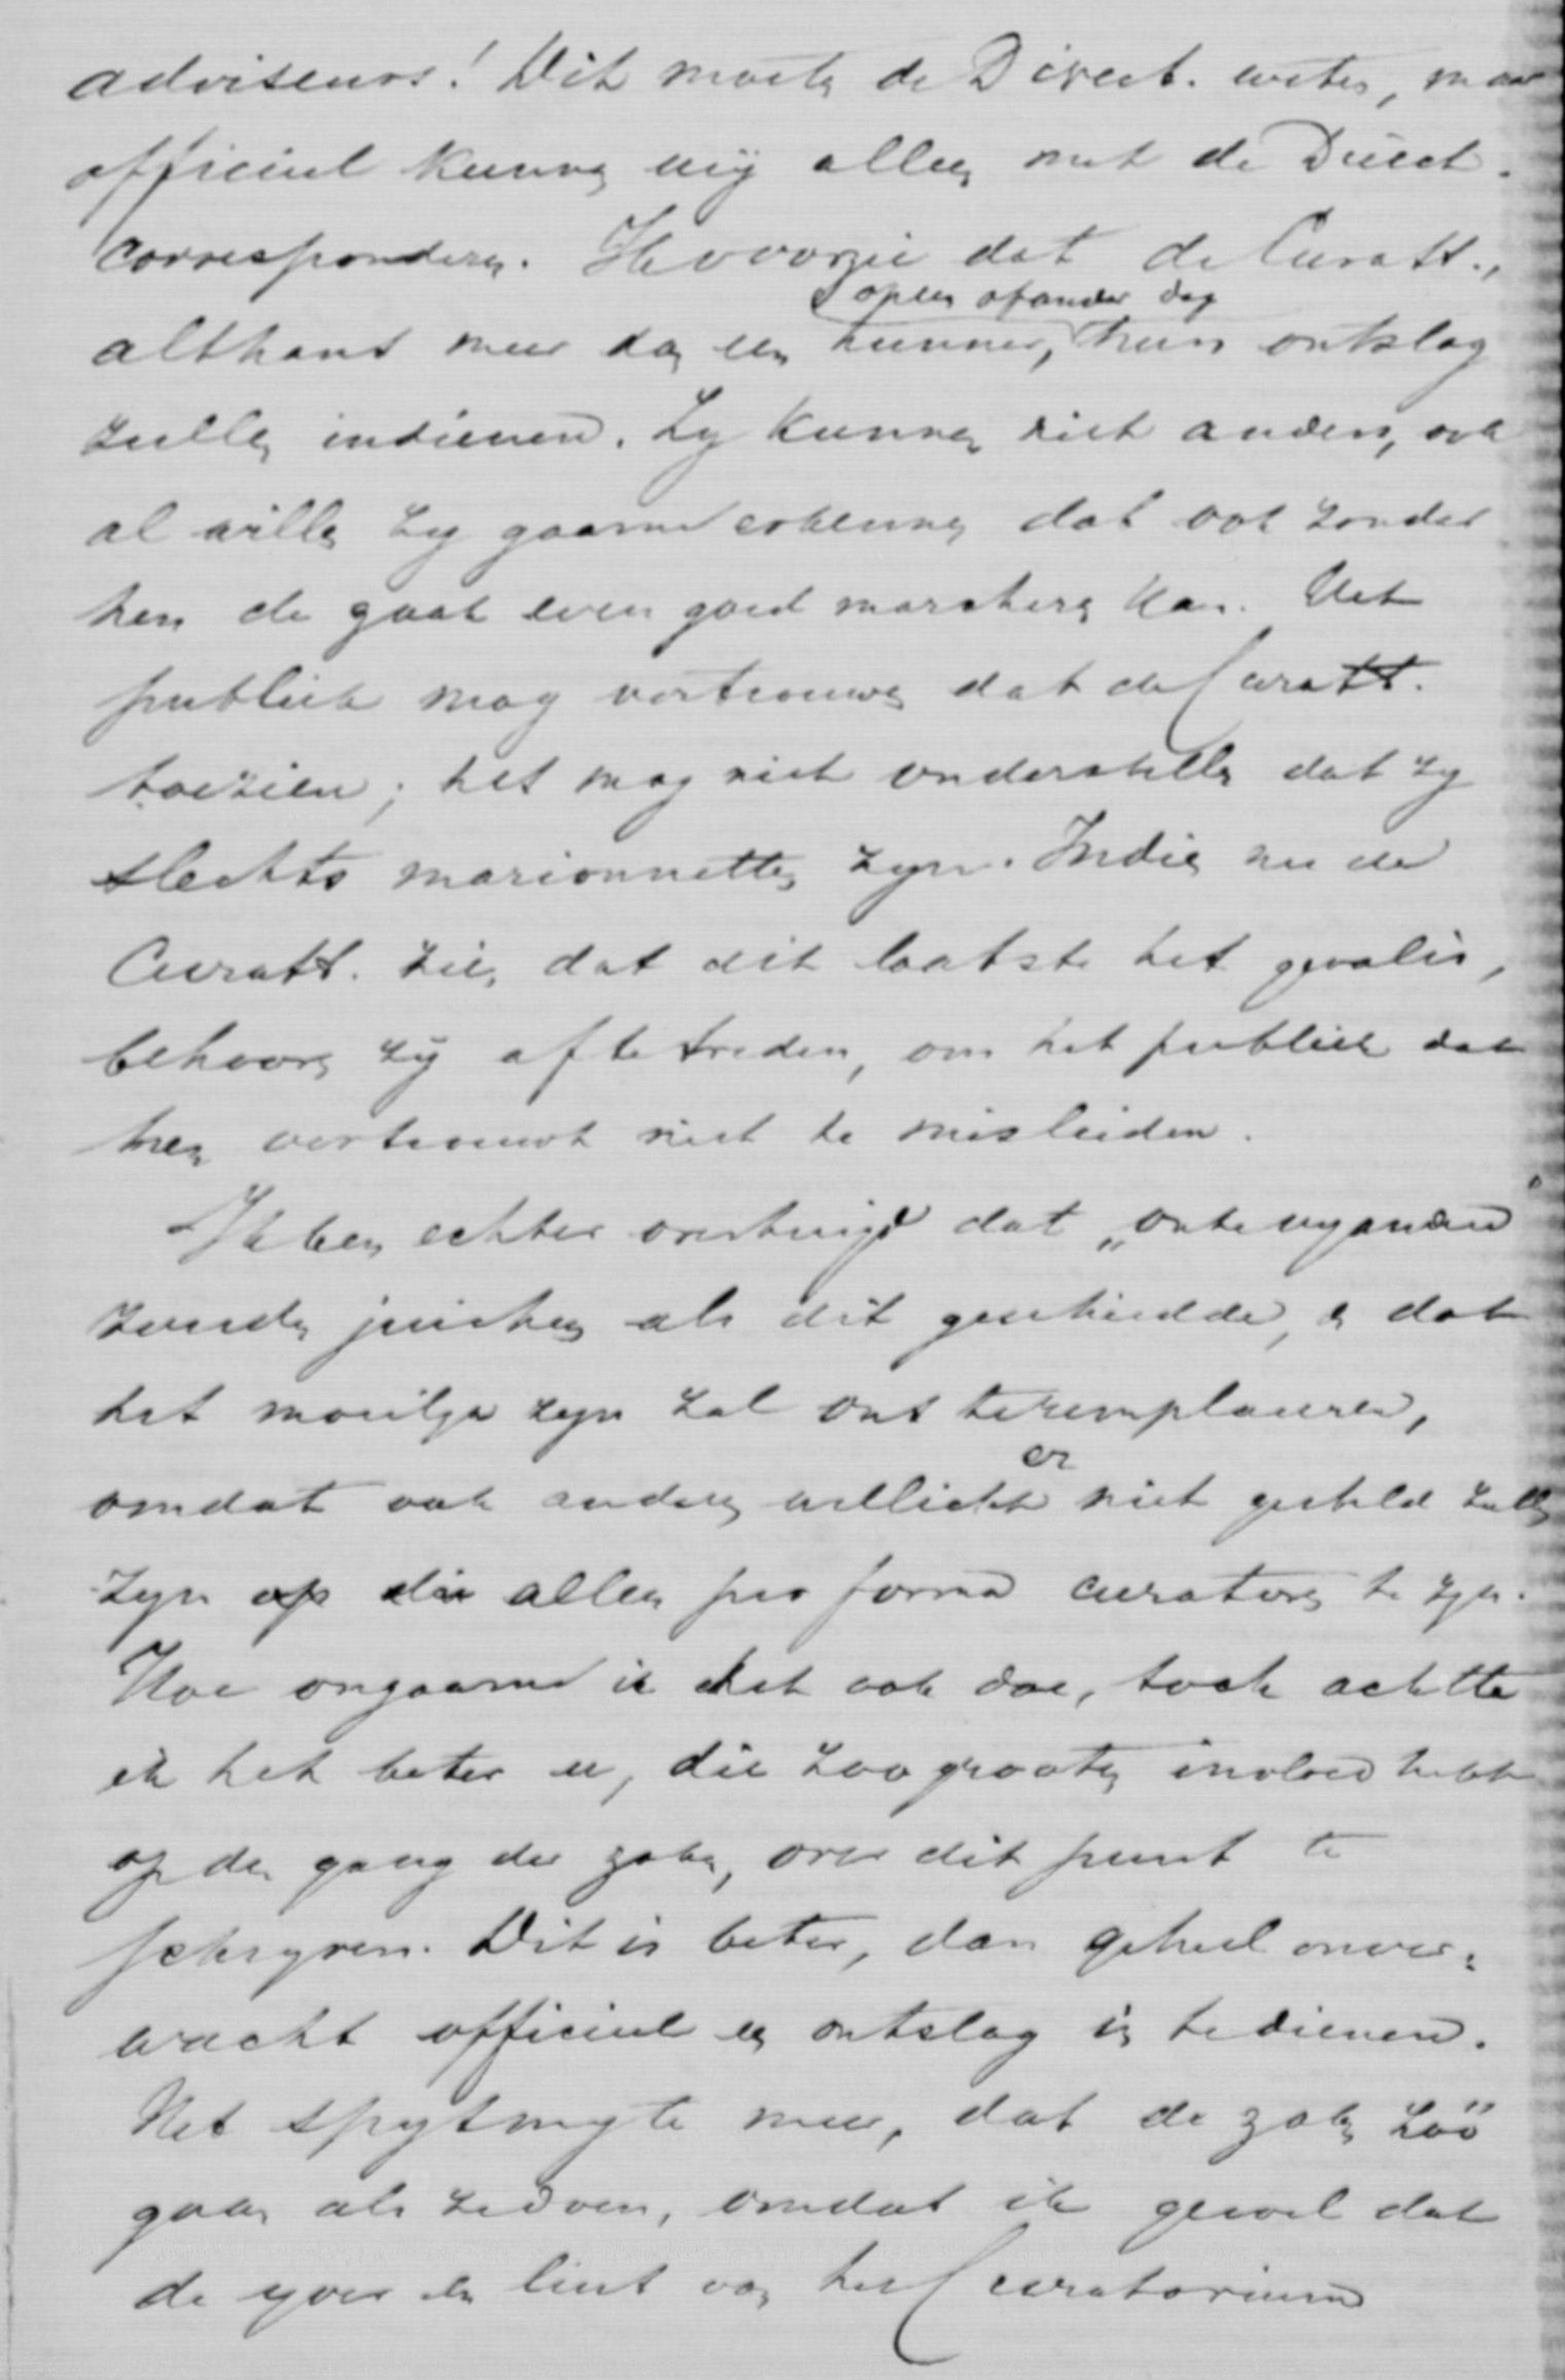 adviseurs! Dit moete de Direct. weten, maar
officieel kunnen wij alleen met de Direct.
correspondeeren. Ik voorzie dat de Curatt.,
op een of ander dag
althans meer dan een hunner, hun ontslag
zullen indienen. Zy kunnen niet anders, ook
al willen zy gaarne erkennen dat ook zonder
hen de zaak even goed marcheren kan. Het
publiek mag vertrouwen dat de Curatt.
toezien; het mag niet onderstellen dat zy
slechts marionnetten zyn. Indien nu de
Curatt. zien, dat dit laatste het geval is,
behooren zij af te treden, om het publiek dat
hen vertrouwt niet te misleiden.
Ik ben echter overtuigd dat „onze vyanden”
zouden juichen als dit geschiedde, en dat
het moeilyk zyn zal ons te remplaceeren,
er
omdat ook anderen wellicht niet gesteld zullen
zyn op die alleen pro forma curatoren te zyn.
Hoe ongaarne ik het ook doe, toch achtte
ik het beter u, die zoo grooten invloed hebt
op den gang der zaken, over dit punt te
schryven. Dit is beter, dan geheel onver-
wacht officieel een ontslag in te dienen.
Het spyt my te meer, dat de zaken zóó
gaan als zy doen, omdat ik gevoel dat
de yver en lust van het Curatorium